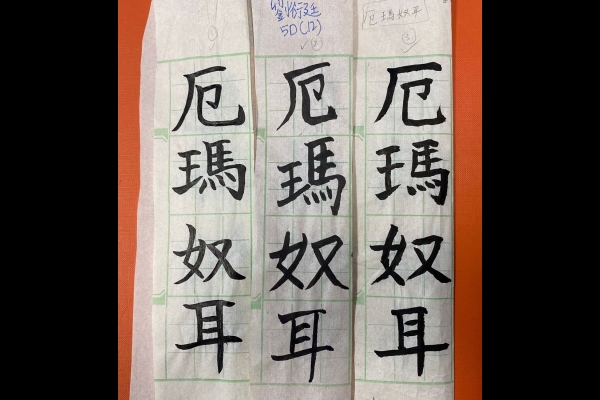 ①
厄瑪奴耳
5D(12)
✓②
厄瑪奴耳
厄瑪奴耳
③
厄瑪奴耳